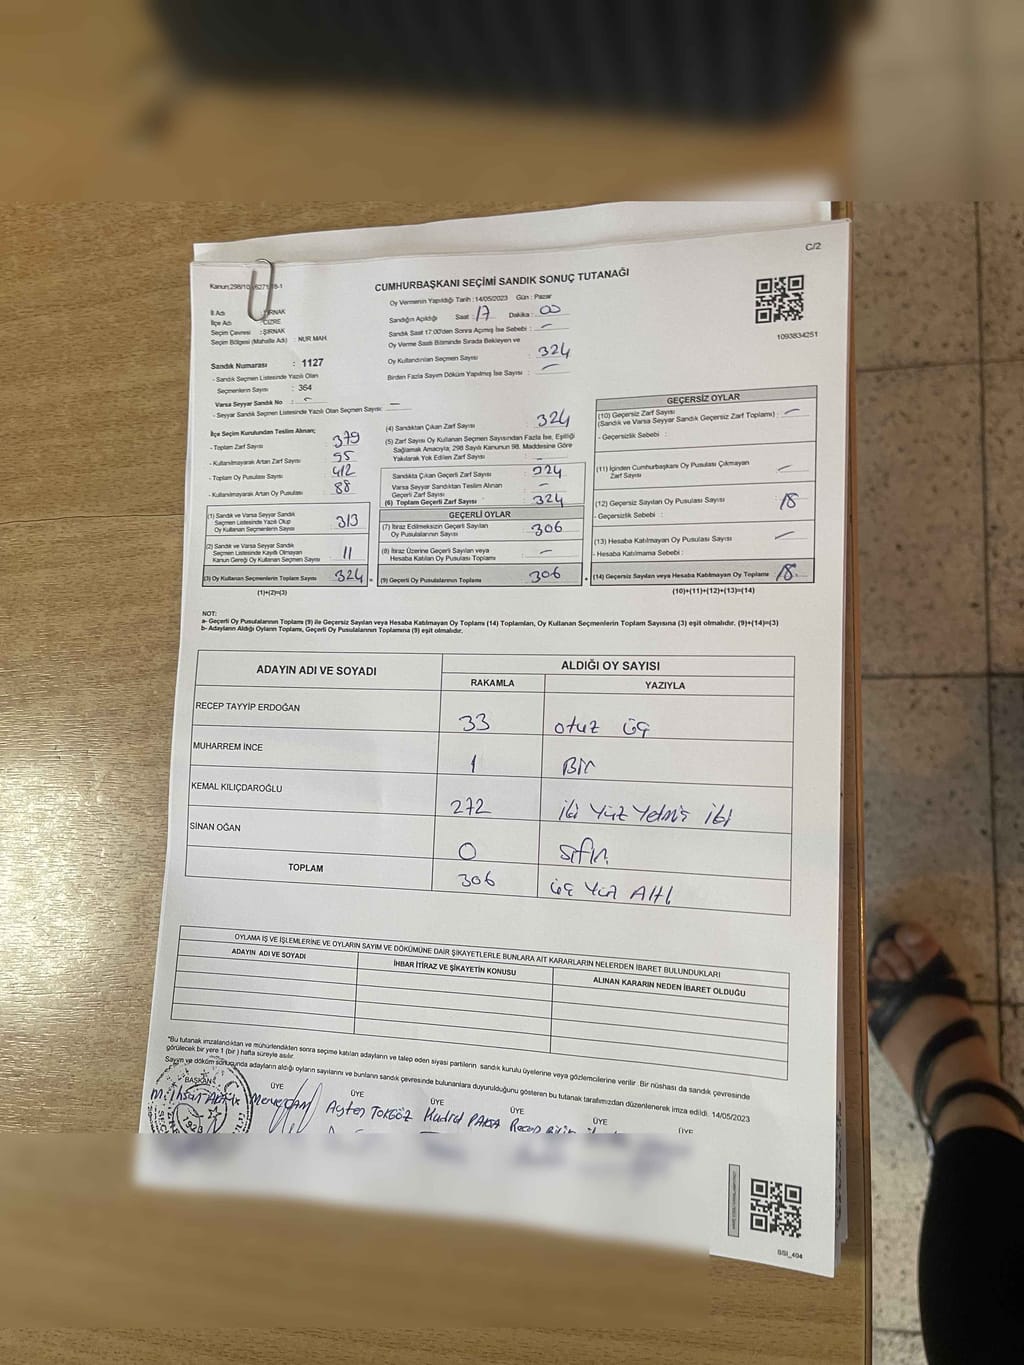 C/2
Kanun:298/10
CUMHURBAŞKANI SEÇİMİ SANDIK SONUÇ TUTANAĞI
Oy Vermenin Yapıldığı Tarih : 14/05/2023 Gün : Pazar
İl Adı : ŞIRNAK
İlçe Adı : CİZRE
Seçim Çevresi : ŞIRNAK
Seçim Bölgesi (Mahalle Adı) : NUR MAH.
Sandığın Açıldığı Saat : 17 Dakika : 00
Sandık Saat 17:00'den Sonra Açılmış İse Sebebi : -
Oy Verme Saati Bitiminde Sırada Bekleyen ve
Oy Kullandırılan Seçmen Sayısı : 324
Birden Fazla Sayım Döküm Yapılmış İse Sayısı : -
1093834251
Sandık Numarası : 1127
- Sandık Seçmen Listesinde Yazılı Olan
Seçmenlerin Sayısı : 364
Varsa Seyyar Sandık No : -
- Seyyar Sandık Seçmen Listesinde Yazılı Olan Seçmen Sayısı: -
İlçe Seçim Kurulundan Teslim Alınan;
- Toplam Zarf Sayısı : 379
- Kullanılmayarak Artan Zarf Sayısı : 55
- Toplam Oy Pusulası Sayısı : 412
- Kullanılmayarak Artan Oy Pusulası : 88
(1) Sandık ve Varsa Seyyar Sandık
Seçmen Listesinde Yazılı Olup
Oy Kullanan Seçmenlerin Sayısı 313
(2) Sandık ve Varsa Seyyar Sandık
Seçmen Listesinde Kayıtlı Olmayan
Kanun Gereği Oy Kullanan Seçmen Sayısı 11
(3) Oy Kullanan Seçmenlerin Toplam Sayısı 324
(1)+(2)=(3)
(4) Sandıktan Çıkan Zarf Sayısı : 324
(5) Zarf Sayısı Oy Kullanan Seçmen Sayısından Fazla İse, Eşitliği
Sağlamak Amacıyla; 298 Sayılı Kanunun 98. Maddesine Göre
Yakılarak Yok Edilen Zarf Sayısı : -
Sandıkta Çıkan Geçerli Zarf Sayısı : 324
Varsa Seyyar Sandıktan Teslim Alınan
Geçerli Zarf Sayısı : -
(6) Toplam Geçerli Zarf Sayısı : 324
GEÇERLİ OYLAR
(7) İtiraz Edilmeksizin Geçerli Sayılan
Oy Pusulalarının Sayısı : 306
(8) İtiraz Üzerine Geçerli Sayılan veya
Hesaba Katılan Oy Pusulası Toplamı : -
(9) Geçerli Oy Pusulalarının Toplamı 306
GEÇERSİZ OYLAR
(10) Geçersiz Zarf Sayısı
(Sandık ve Varsa Seyyar Sandık Geçersiz Zarf Toplamı) : -
- Geçersizlik Sebebi :
(11) İçinden Cumhurbaşkanı Oy Pusulası Çıkmayan
Zarf Sayısı : -
(12) Geçersiz Sayılan Oy Pusulası Sayısı : 18
- Geçersizlik Sebebi :
(13) Hesaba Katılmayan Oy Pusulası Sayısı : -
- Hesaba Katılmama Sebebi :
(14) Geçersiz Sayılan veya Hesaba Katılmayan Oy Toplamı : 18
(10)+(11)+(12)+(13)=(14)
NOT:
a- Geçerli Oy Pusulalarının Toplamı (9) ile Geçersiz Sayılan veya Hesaba Katılmayan Oy Toplamı (14) Toplamları, Oy Kullanan Seçmenlerin Toplam Sayısına (3) eşit olmalıdır. (9)+(14)=(3)
b- Adayların Aldığı Oyların Toplamı, Geçerli Oy Pusulalarının Toplamına (9) eşit olmalıdır.
ADAYIN ADI VE SOYADI
ALDIĞI OY SAYISI
RAKAMLA YAZIYLA
RECEP TAYYİP ERDOĞAN 33 otuz üç
MUHARREM İNCE 1 Bir
KEMAL KILIÇDAROĞLU 272 iki Yüz Yetmiş iki
SİNAN OĞAN 0 sıfır
TOPLAM 306 üç Yüz Altı
OYLAMA İŞ VE İŞLEMLERİNE VE OYLARIN SAYIM VE DÖKÜMÜNE DAİR ŞİKAYETLERLE BUNLARA AİT KARARLARIN NELERDEN İBARET BULUNDUKLARI
ADAYIN ADI VE SOYADI
İHBAR İTİRAZ VE ŞİKAYETİN KONUSU
ALINAN KARARIN NEDEN İBARET OLDUĞU
*Bu tutanak imzalandıktan ve mühürlendikten sonra seçime katılan adayların ve talep eden siyasi partilerin sandık kurulu üyelerine veya gözlemcilerine verilir. Bir nüshası da sandık çevresinde
görülecek bir yere 1 (bir) hafta süreyle asılır.
Sayım ve döküm sonucunda adayların aldığı oyların sayılarını ve bunların sandık çevresinde bulunanlara duyurulduğunu gösteren bu tutanak tarafımızdan düzenlenerek imza edildi. 14/05/2023
BAŞKAN ÜYE ÜYE ÜYE ÜYE ÜYE ÜYE
Ayten TOKGÖZ
BSI_404